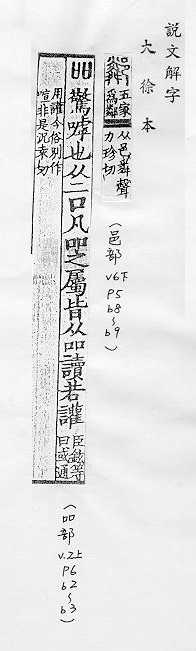 說文解字
大徐本
鄰 五家爲鄰从邑粦聲力珍切
(邑部 v6下 p5 b8~b9)
吅 驚嘑也从二口凡吅之屬皆从吅讀若讙臣鉉等曰或通
用讙今俗別作喧非是況袁切
(吅部 v.2上 p6 b2~b3)